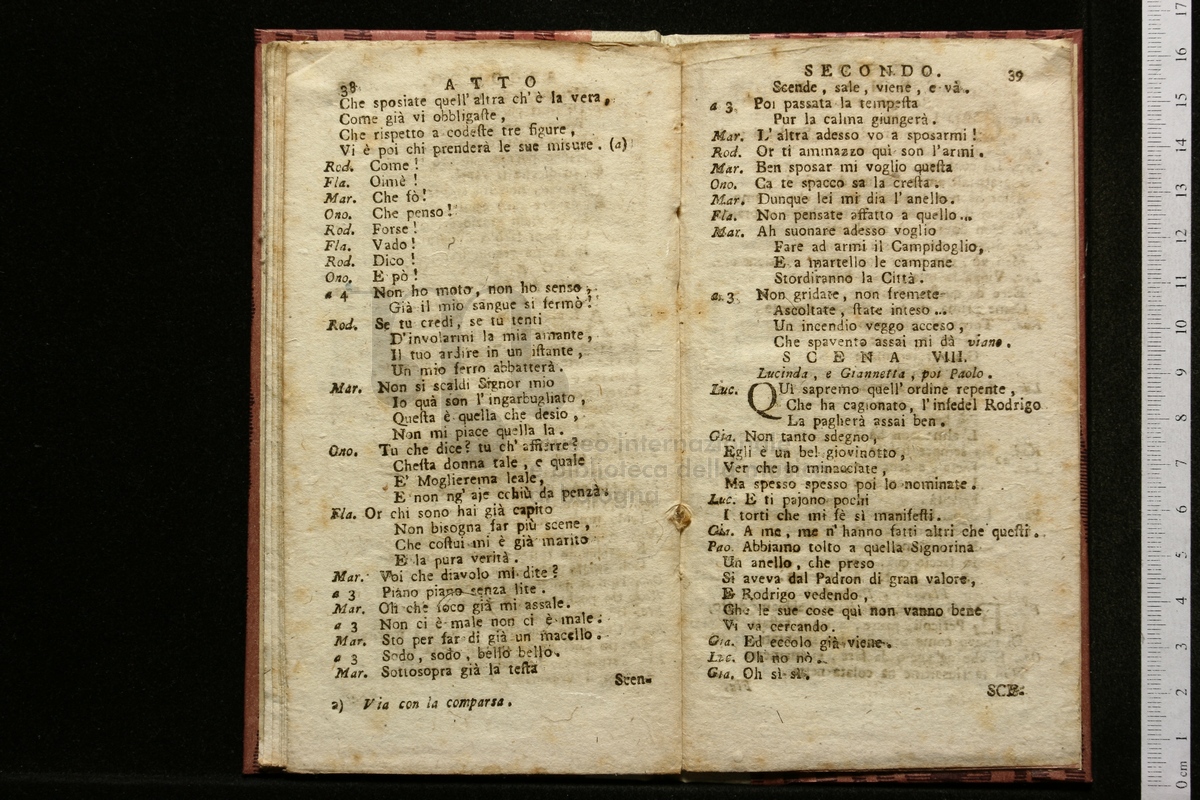 38 ATTO
Che sposiate quell' altra ch' è la vera,
Come già vi obbligaste,
Che rispetto a codeste tre figure,
Vi è poi chi prenderà le sue misure. (a)
Rod. Come!
Fla. Oimè!
Mar. Che fò!
Ono. Che penso!
Rod. Forse!
Fla. Vado!
Rod. Dico!
Ono. E pò!
a 4 Non ho moto, non ho senso,
Già il mio sangue si fermò!
Rod. Se tu credi, se tu tenti
D'involarmi la mia amante,
Il tuo ardire in un istante,
Un mio ferro abbatterà.
Mar. Non si scaldi Signor mio
Io quà son l'ingarbugliato,
Questa è quella che desio,
Non mi piace quella la.
Ono. Tu che dice? tu ch' afferre?
Chesta donna tale, e quale
E' Moglierema leale,
E non ng' aje cchiù da penzà.
Fla. Or chi sono hai già capito
Non bisogna far più scene,
Che costui mi è già marito
E la pura verità.
Mar. Voi che diavolo mi dite?
a 3 Piano piano senza lite.
Mar. Oh che foco già mi assale.
a 3 Non ci è male non ci è male.
Mar. Sto per far di già un macello.
a 3 Sodo, sodo, bello bello.
Mar. Sottosopra già la testa
Scen-
a) Via con la comparsa.
SECONDO. 39
Scende, sale, viene, e và.
a 3 Poi passata la tempesta
Pur la calma giungerà.
Mar. L'altra adesso vo a sposarmi!
Rod. Or ti ammazzo quì son l'armi.
Mar. Ben sposar mi voglio questa
Ono. Ca te spacco sa la cresta.
Mar. Dunque lei mi dia l'anello.
Fla. Non pensate affatto a quello...
Mar. Ah suonare adesso voglio
Fare ad armi il Campidoglio,
E a martello le campane
Stordiranno la Città.
a. 3 Non gridate, non fremete
Ascoltate, state inteso...
Un incendio veggo acceso,
Che spavento assai mi dà viano.
SCENA VIII.
Lucinda, e Giannetta, poi Paolo.
Luc. QUì sapremo quell'ordine repente,
Che ha cagionato, l'infedel Rodrigo
La pagherà assai ben.
Gia. Non tanto sdegno,
Egli è un bel giovinotto,
Ver che lo minacciate,
Ma spesso spesso poi lo nominate.
Luc. E ti pajono pochi
I torti che mi fè sì manifesti.
Gia. A me, me n'hanno fatti altri che questi.
Pao. Abbiamo tolto a quella Signorina
Un anello, che preso
Si aveva dal Padron di gran valore,
E Rodrigo vedendo,
Che le sue cose quì non vanno bene
Vi va cercando.
Gia. Ed eccolo già viene.
Luc. Oh no nò.
Gia. Oh sì sì.
SCE-